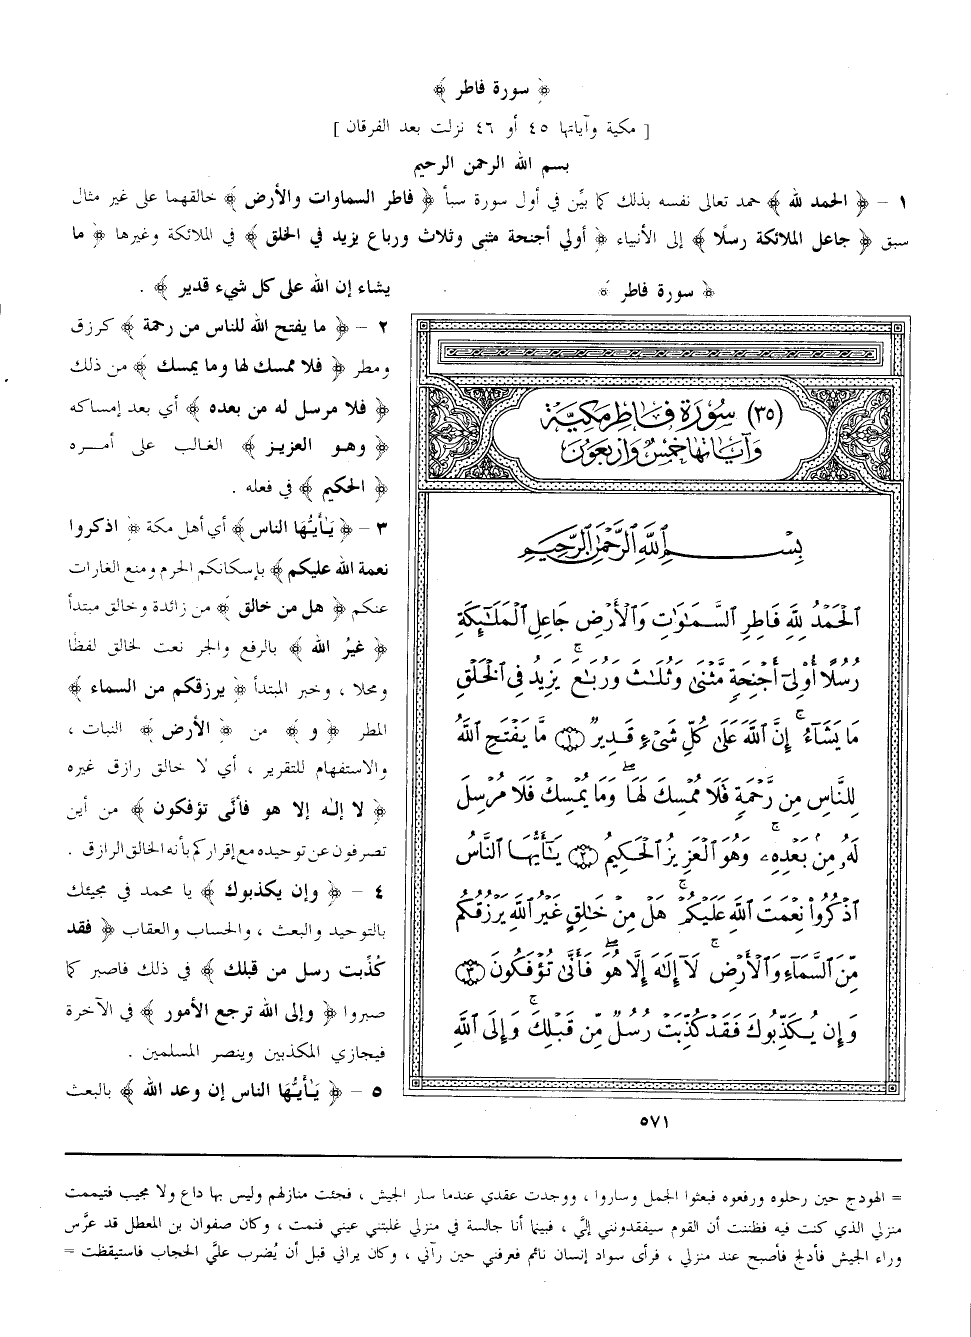 ﴿ سورة فاطر ﴾
[ مكية وآياتها ٤٥ أو ٤٦ نزلت بعد الفرقان ]
بسم الله الرحمن الرحيم
١ – ﴿ الحمد لله ﴾ حمد تعالى نفسه بذلك كما بيِّن في أول سورة سبأ ﴿ فاطر السماوات والأرض ﴾ خالقهما على غير مثال
سبق ﴿ جاعل الملائكة رسلًا ﴾ إلى الأنبياء ﴿ أولي أجنحة مثنى وثلاث ورباع يزيد في الخلق ﴾ في الملائكة وغيرها ﴿ ما
يشاء إن الله على كل شيء قدير ﴾ .
٢ – ﴿ ما يفتح الله للناس من رحمة ﴾ كرزق
ومطر ﴿ فلا ممسك لها وما يمسك ﴾ من ذلك
﴿ فلا مرسل له من بعده ﴾ أي بعد إمساكه
﴿ وهو العزيز ﴾ الغالب على أمره
﴿ الحكيم ﴾ في فعله .
٣ – ﴿ يَٰأَيُّهَا الناس ﴾ أي أهل مكة ﴿ اذكروا
نعمة الله عليكم ﴾ بإسكانكم الحرم ومنع الغارات
عنكم ﴿ هل من خالق ﴾ من زائدة وخالق مبتدأ
﴿ غيرُ الله ﴾ بالرفع والجر نعت لخالق لفظًا
ومحلا ، وخبر المبتدأ ﴿ يرزقكم من السماء ﴾
المطر ﴿ و ﴾ من ﴿ الأرض ﴾ النبات ،
والاستفهام للتقرير ، أي لا خالق رازق غيره
﴿ لا إله إلا هو فأنَّى تؤفكون ﴾ من أين
تصرفون عن توحيده مع إقراركم بأنه الخالق الرازق .
٤ – ﴿ وإن يكذبوك ﴾ يا محمد في مجيئك
بالتوحيد والبعث ، والحساب والعقاب ﴿ فقد
كُذِّبت رسل من قبلك ﴾ في ذلك فاصبر كما
صبروا ﴿ وإلى الله ترجع الأمور ﴾ في الآخرة
فيجازي المكذبين وينصر المسلمين .
٥ – ﴿ يَٰأَيُّهَا الناس إن وعد الله ﴾ بالبعث
﴿ سورة فاطر ﴾
(٣٥) سُورَة فَاطِر مَكِيَّة
وَآيَاتهَا خَمْسٌ وَأَرْبَعُونَ
بِسْمِ اللَّهِ الرَّحْمَٰنِ الرَّحِيمِ
ٱلْحَمْدُ لِلَّهِ فَاطِرِ ٱلسَّمَٰوَٰتِ وَٱلْأَرْضِ جَاعِلِ ٱلْمَلَٰٓئِكَةِ
رُسُلًا أُو۟لِىٓ أَجْنِحَةٍ مَّثْنَىٰ وَثُلَٰثَ وَرُبَٰعَ ۚ يَزِيدُ فِى ٱلْخَلْقِ
مَا يَشَآءُ ۚ إِنَّ ٱللَّهَ عَلَىٰ كُلِّ شَىْءٍ قَدِيرٌ ﴿١﴾ مَّا يَفْتَحِ ٱللَّهُ
لِلنَّاسِ مِن رَّحْمَةٍ فَلَا مُمْسِكَ لَهَا ۖ وَمَا يُمْسِكْ فَلَا مُرْسِلَ
لَهُۥ مِنۢ بَعْدِهِۦ ۚ وَهُوَ ٱلْعَزِيزُ ٱلْحَكِيمُ ﴿٢﴾ يَٰٓأَيُّهَا ٱلنَّاسُ
ٱذْكُرُوا۟ نِعْمَتَ ٱللَّهِ عَلَيْكُمْ ۚ هَلْ مِنْ خَٰلِقٍ غَيْرُ ٱللَّهِ يَرْزُقُكُم
مِّنَ ٱلسَّمَآءِ وَٱلْأَرْضِ ۚ لَآ إِلَٰهَ إِلَّا هُوَ ۖ فَأَنَّىٰ تُؤْفَكُونَ ﴿٣﴾
وَإِن يُكَذِّبُوكَ فَقَدْ كُذِّبَتْ رُسُلٌ مِّن قَبْلِكَ ۚ وَإِلَى ٱللَّهِ
٥٧١
= الهودج حين رحلوه ورفعوه فبعثوا الجمل وساروا ، ووجدت عقدي عندما سار الجيش ، فجئت منازلهم وليس بها داع ولا مجيب فتيممت
منزلي الذي كنت فيه فظننت أن القوم سيفقدونني إليَّ ، فبينما أنا جالسة في منزلي غلبتني عيني فنمت ، وكان صفوان بن المعطل قد عرَّس
وراء الجيش فأدلج فأصبح عند منزلي ، فرأى سواد إنسان نائم فعرفني حين رآني ، وكان يراني قبل أن يُضرب عليَّ الحجاب فاستيقظت =